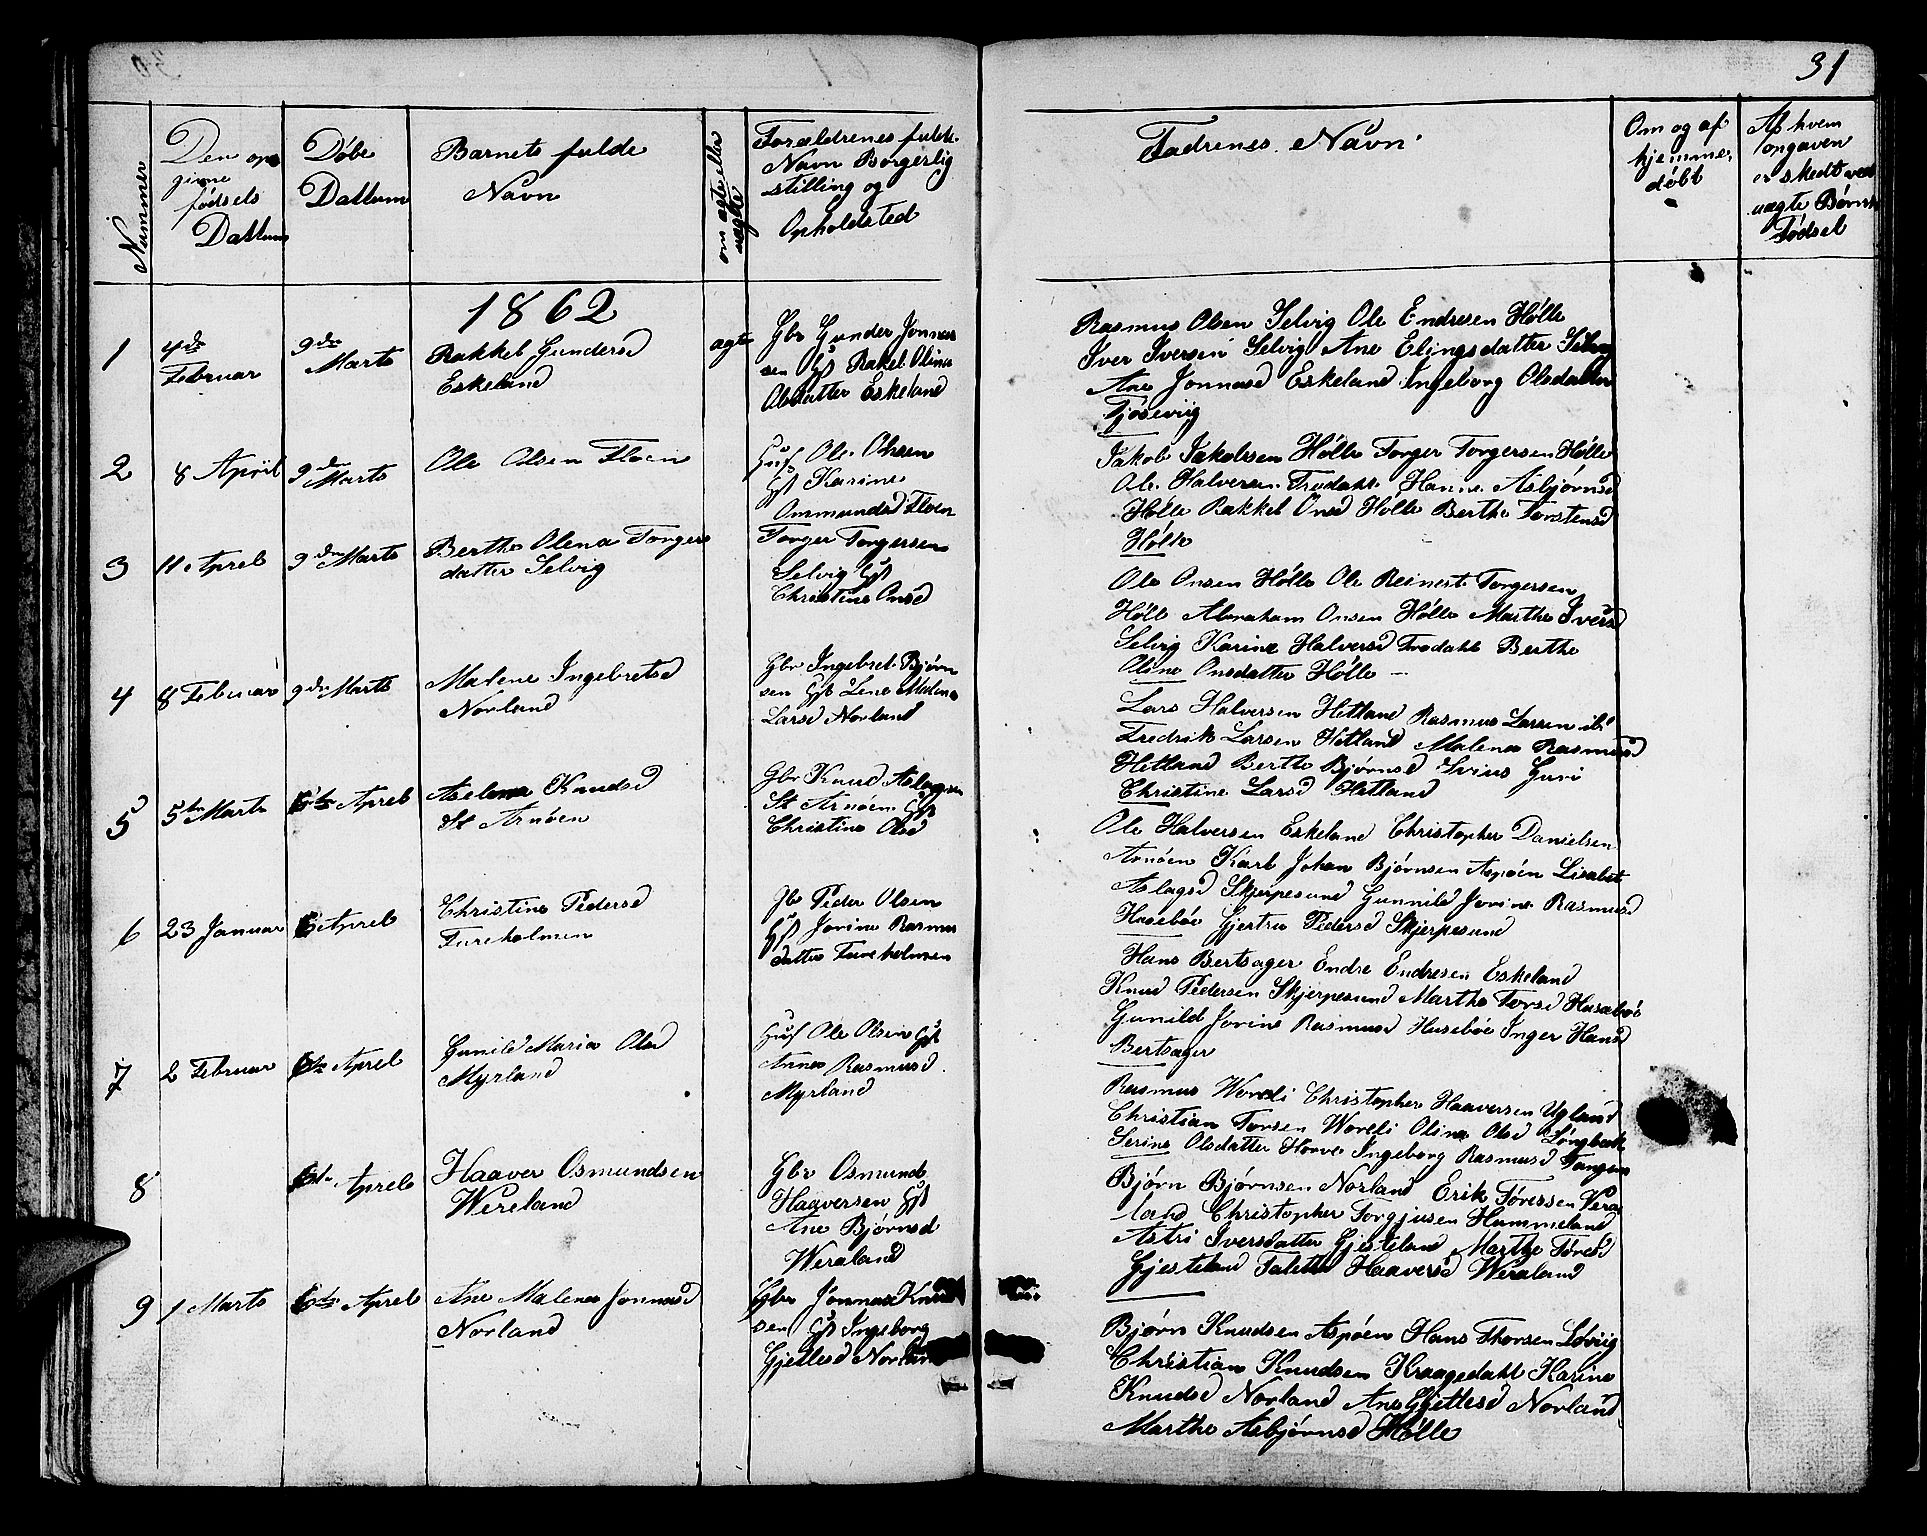 31
Nummer
Den op
givne
fødsels
Dattum
Døbe
Dattum
Barnets fulde
Navn
om ægte eller
uægte
Forældrenes fulde
Navn Borgerlig
stilling og
Opholdsted
Fadrenes Navn
Om og af
hjemme
døbt
Af hvem
ongaven
er skedt ved
uægte Børns
Fødsel
1862
1
4de
Februar
9de
Marts
Rakkel Gundersd
Eskeland
ægte
Gbr Gunder Jonnas
sen Gf Rakel Oline
Olsdatter Eskeland
Rasmus Olsen Selvig Ole Endresen Hølle
Iver Iversen Selvig Ane Elingsdatter Selvig
Ane Jonnasd Eskeland Ingeborg Olsdatter
Tjøseviig
2
8 Apriil
9de Marts
Ole Olsen Floen
Huf Ole Olssen
Gf Karine
Ommundsd Floen
Jakob Jakobssen Hølle Torger Torgersen Hølle
Ole Halversen Trodahl Hanne Asbjørnsd
Hølle Rakkel Onsd Hølle Berthe Torstensd
Hølle
3
11 Aprel
9de Marts
Berthe Olena Torgers
datter Selvig
Torger Torgersen
Selvig Gf
Christine Onsd
Ole Onsen Hølle Ole Reinert Torgersen
Hølle Abraham Onsen Hølle Marthe Iversd
Selvig Karine Halversd Trodahl Berthe
Olene Onsdatter Hølle
4
8 Februar
9de Marts
Malene Ingebretsd
Norland
Gbr Ingebret Bjørn
sen Gf Lene Malene
Larsd Norland
Lars Halversen Hetland Rasmus Larsen ib
Fredrik Larsen Hetland Malena Rasmusd
Hetland Berthe Bjørnsd Guri
Christine Larsd Hetland
5
5te Marts
6te Aprel
Aselena Knudsd
St Arnøen
Gbr Knud Aslagsen
St Arnøen Gf
Christine Olsd
Ole Halversen Eskeland Christopher Danielsen
Arnøen Karl Johan Bjørnsen Aspøen Lisabet
Aslagsd Skjerpesund Gunnild Jorine Rasmusd
Husebøe Gjertru Pedersd Skjerpesund
6
23 Januar
6 Aprel
Christine Pedersd
Fureholmen
Gbr Peder Olsen
Gf Jorine Rasmus
datter Fureholmen
Hans Bertsager Endre Endresen Eskeland
Knud Pedersen Skjerpesund Marthe Torsd Husebøe
Gunild Jorine Rasmusd Husebøe Inger Hansd
Bertsager
7
2 Februar
6te Aprel
Gunild Maria Olsd
Myrland
Huf Ole Olsen Gf
Anne Rasmusd
Myrland
Rasmus Woreli Christopher Haaversen Ugland
Christian Torsen Woreli Olina Olsd Lønghæk
Serine Olsdatter Horve Ingeborg Rasmusd Tangen
8
6te Aprel
Haaver Osmundsen
Wereland
Gbr Osmund
Haaversen Gf
Ane Bjørnsd
Weraland
Bjørn Bjørnsen Norland Erik Tøressen Vera
land Christopher Torgjusen Hummeland
Astri Iversdatter Gjesteland Marthe Tøresd
Gjesteland Talette Haaversd Weraland
9
1 Marts
6te Aprel
Ane Malene Jonnasd
Norland
Gbr Jonnas Knud
sen Gf Ingeborg
Gjetlesd Norland
Bjørn Knudsen Aspøen Hans Thorsen Løviig
Christian Knudsen Kraagedahl Karine
Knudsd Norland Ane Gjetlesd Norland
Marthe Asbjørnsd Hølle